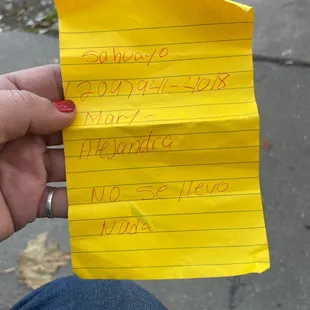 Sahuayo
(209)941-4018
Mary-
Alejandra
No se llevo
Nada